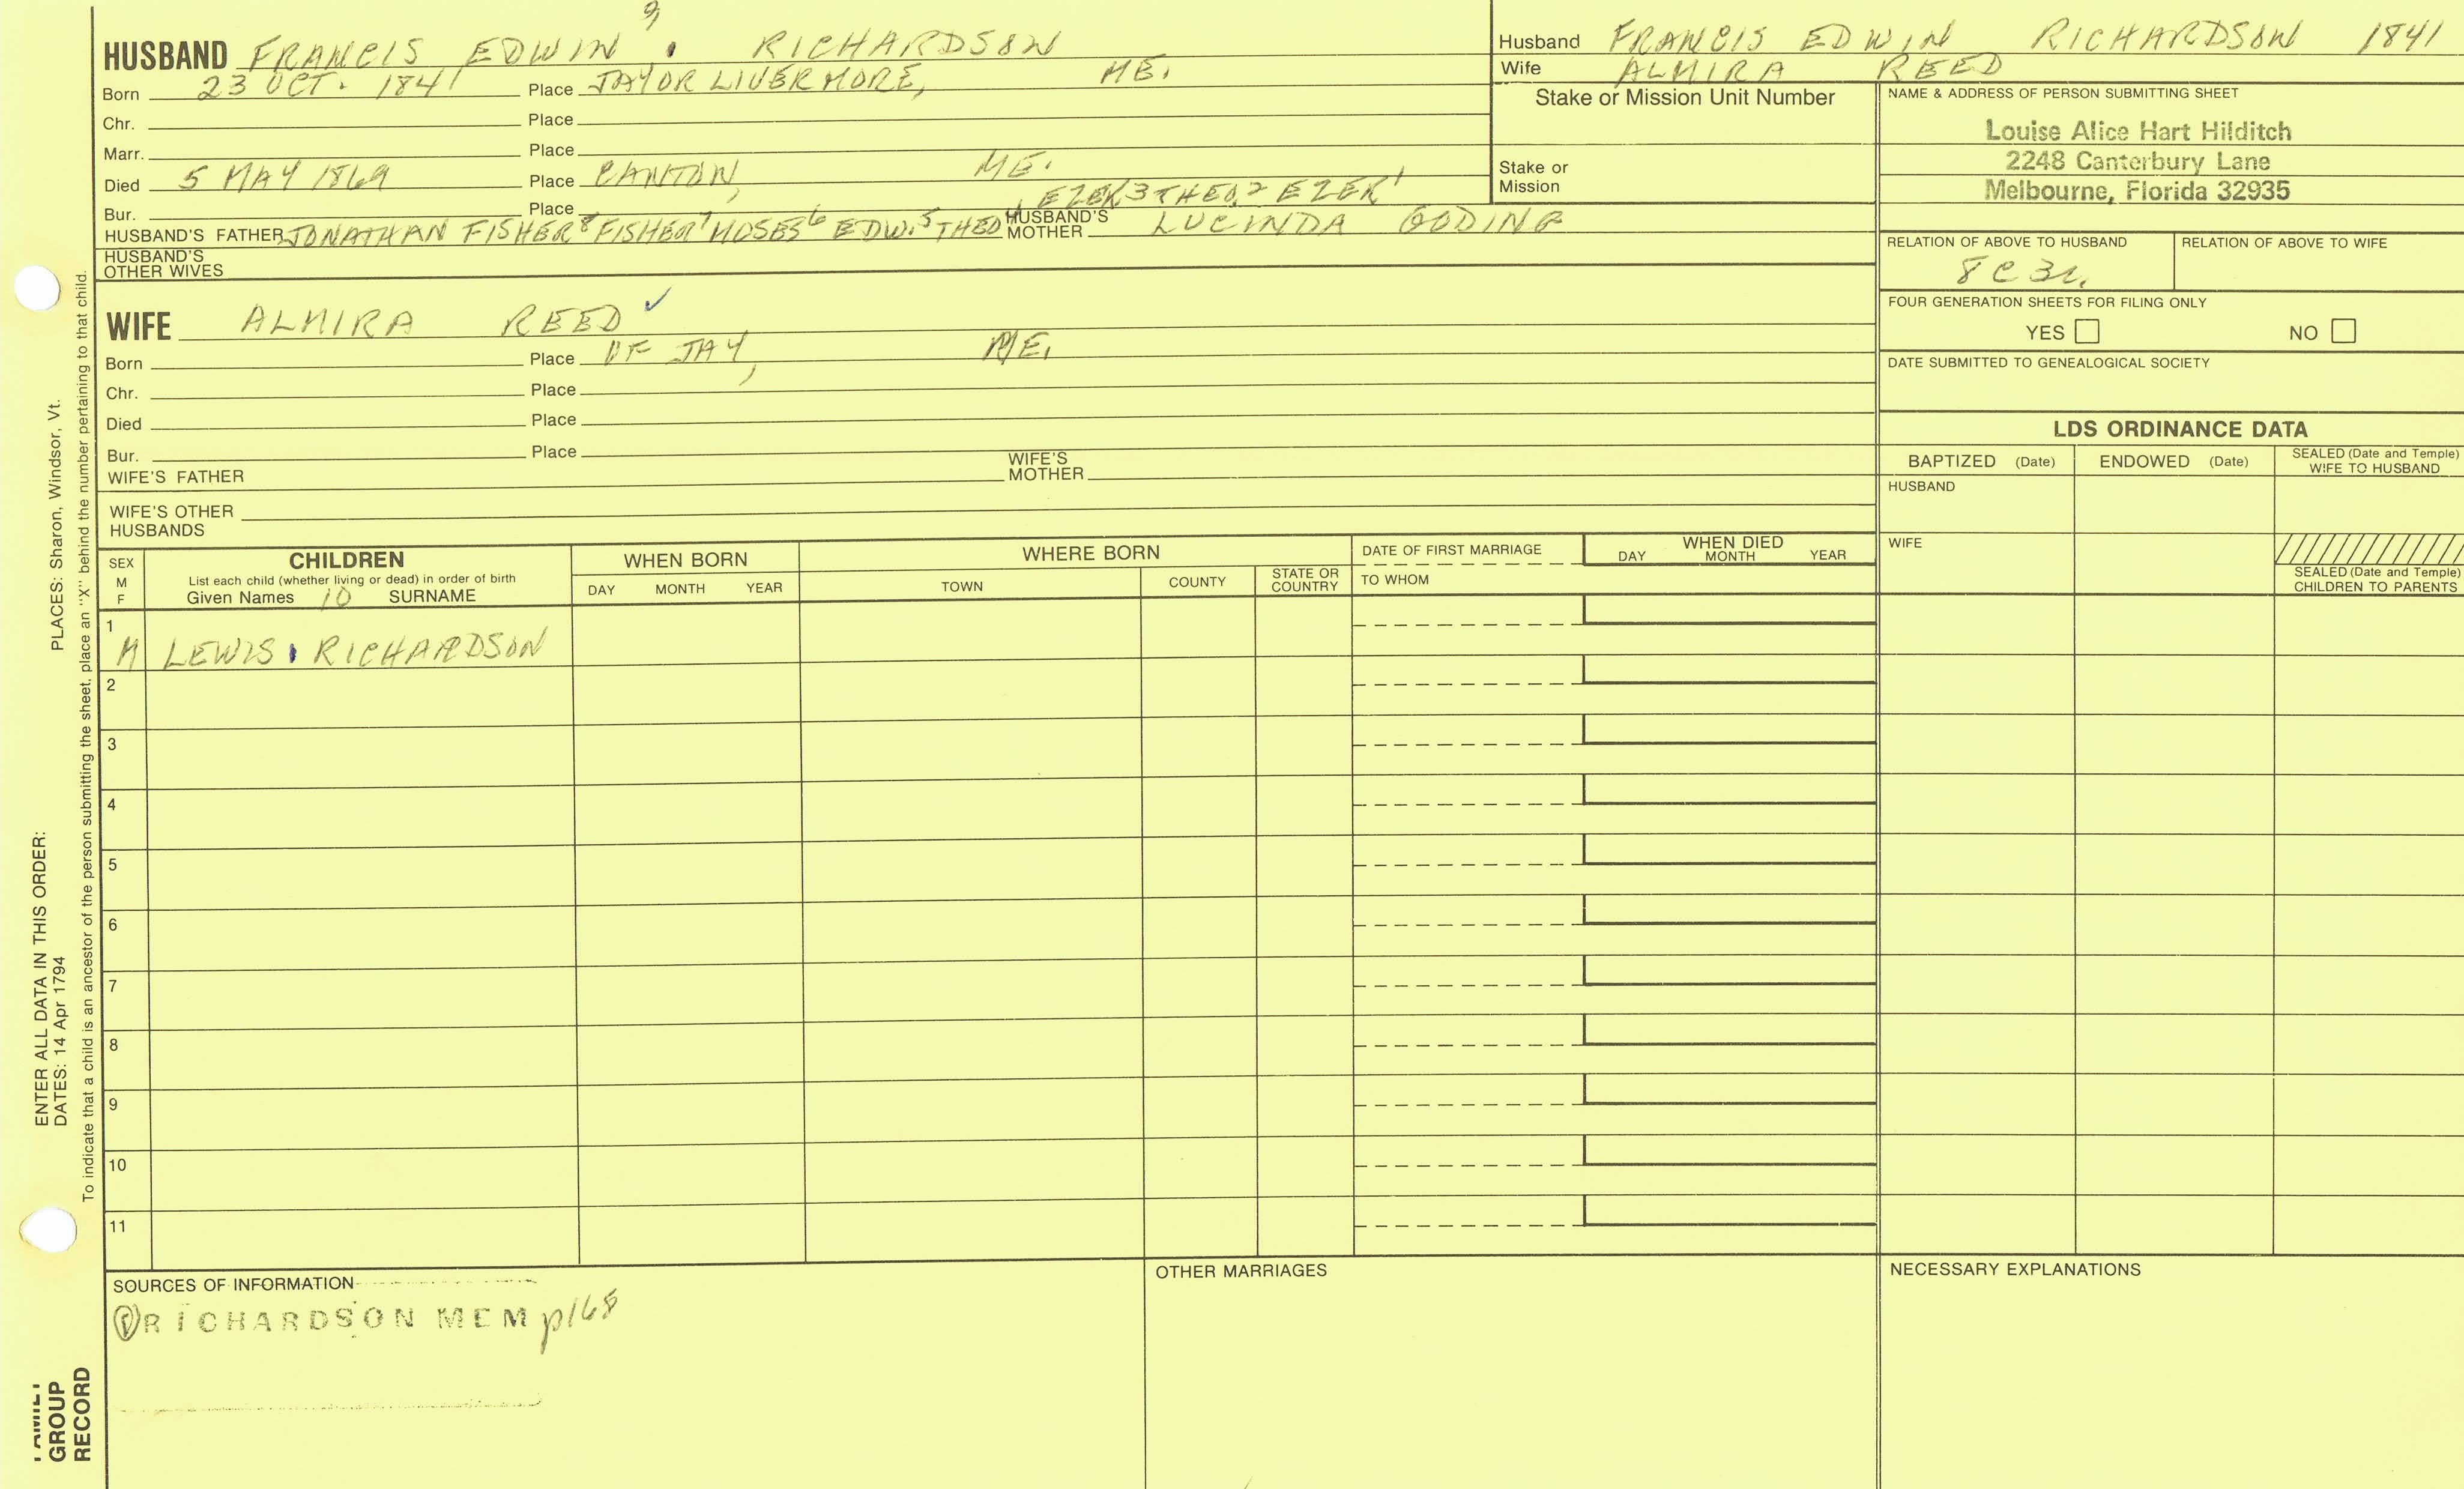 9
HUSBAND FRANCIS EDWIN RICHARDSON
Born 23 OCT. 1841 Place JAY OR LIVERMORE, ME.
Chr. Place
Marr. Place
Died 5 MAY 1869 Place CANTON, ME.
Bur. Place EZEK3 THEO.2 EZEK1
HUSBAND'S FATHER JONATHAN FISHER8 FISHER7 MOSES6 EDW.5 THEO4 HUSBAND'S MOTHER LUCINDA GODING
HUSBAND'S OTHER WIVES
WIFE ALMIRA REED ✓
Born Place OF JAY, ME.
Chr. Place
Died Place
Bur. Place
WIFE'S FATHER WIFE'S MOTHER
WIFE'S OTHER HUSBANDS
Husband FRANCIS EDWIN RICHARDSON 1841
Wife ALMIRA REED
Stake or Mission Unit Number
Stake or Mission
NAME & ADDRESS OF PERSON SUBMITTING SHEET
Louise Alice Hart Hilditch
2248 Canterbury Lane
Melbourne, Florida 32935
RELATION OF ABOVE TO HUSBAND RELATION OF ABOVE TO WIFE
8C3R.
FOUR GENERATION SHEETS FOR FILING ONLY
YES NO
DATE SUBMITTED TO GENEALOGICAL SOCIETY
LDS ORDINANCE DATA
BAPTIZED (Date) ENDOWED (Date) SEALED (Date and Temple) WIFE TO HUSBAND
HUSBAND
WIFE
SEALED (Date and Temple) CHILDREN TO PARENTS
SEX M F
CHILDREN
List each child (whether living or dead) in order of birth
Given Names 10 SURNAME
WHEN BORN
DAY MONTH YEAR
WHERE BORN
TOWN COUNTY STATE OR COUNTRY
DATE OF FIRST MARRIAGE
TO WHOM
WHEN DIED
DAY MONTH YEAR
1
M LEWIS RICHARDSON
2
3
4
5
6
7
8
9
10
11
SOURCES OF INFORMATION
P RICHARDSON MEM p168
OTHER MARRIAGES
NECESSARY EXPLANATIONS
ENTER ALL DATA IN THIS ORDER:
DATES: 14 Apr 1794 PLACES: Sharon, Windsor, Vt.
To indicate that a child is an ancestor of the person submitting the sheet, place an "X" behind the number pertaining to that child.
FAMILY
GROUP
RECORD